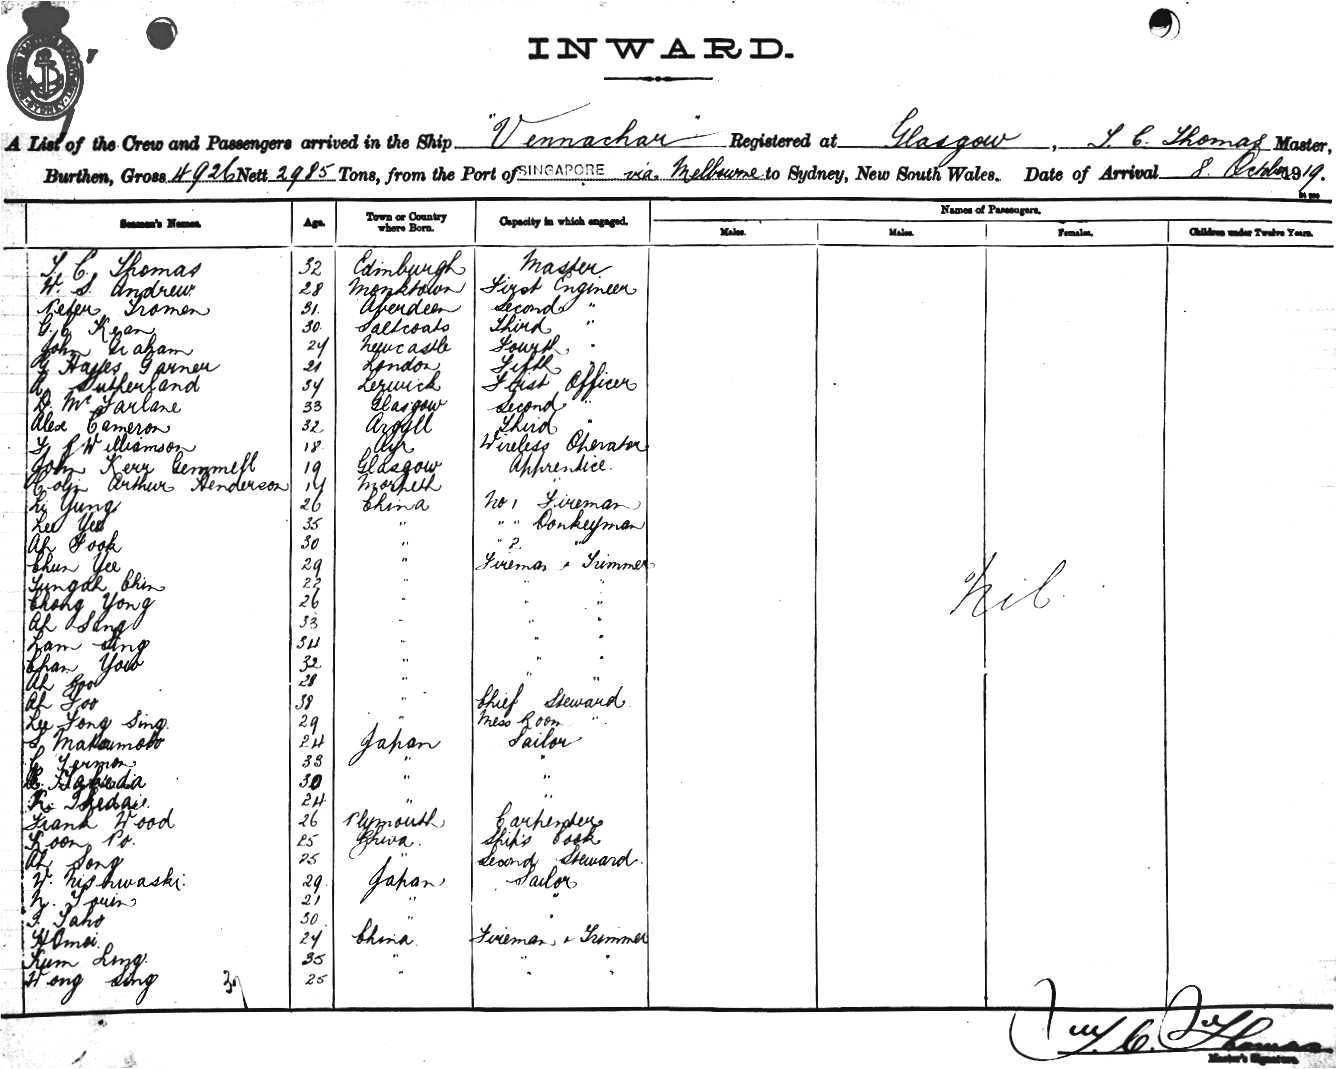 INWARD.
A List of the Crew and Passengers arrived in the Ship "Vennachar" Registered at Glasgow, T. C. Thomas Master,
Burthen, Gross 4926 Nett 2985 Tons, from the Port of SINGAPORE via Melbourne to Sydney, New South Wales. Date of Arrival 8. Octbr 1919.
Seamen's Names. Age. Town or Country where Born. Capacity in which engaged. Names of Passengers.
Males. Males. Females. Children under Twelve Years.
T. C. Thomas 32 Edinburgh Master
W. S. Andrew 28 Monktown First Engineer
Peter Tromen 31 Aberdeen Second "
G. C. Kean 30 Saltcoats Third "
John Graham 24 Newcastle Fourth "
G Hayes Garner 21 London Fifth "
A. Sutherland 34 Lerwick First Officer
D. McFarlane 33 Glasgow Second "
Alex Cameron 32 Argyll Third "
Williamson 18 Ayr Wireless Operator
John Kerr Gemmell 19 Glasgow Apprentice
Colin Arthur Henderson 17 Morpeth "
Li Yung 26 China No 1 Fireman
Lee Yee 35 " " " Donkeyman
Ah Fook 30 " " 2. "
Chun Yee 29 " Fireman & Trimmer
Chin 22 " " "
Chong Yong 26 " " "
Ah Sang 33 " " "
Lam Sing 34 " " "
Chan Yow 32 " " "
Ah 28 " " "
Ah Foo 38 " Chief Steward
Lee Fong Sing 29 " Mess Room "
S. Matsumoto 24 Japan Sailor
33 " "
30 " "
K. 24 " "
Frank Wood 26 Plymouth Carpenter
Koon Po. 25 China. Ship's Cook
Ah Song 25 " Second Steward.
W. Nishiwaski. 29 Japan Sailor
21 " "
30 " "
H Omoi 24 China. Fireman & Trimmer
Kum Ling. 35 " " "
Wong Sing 25 " " "
Nil
T. C. Thomas
Master's Signature.